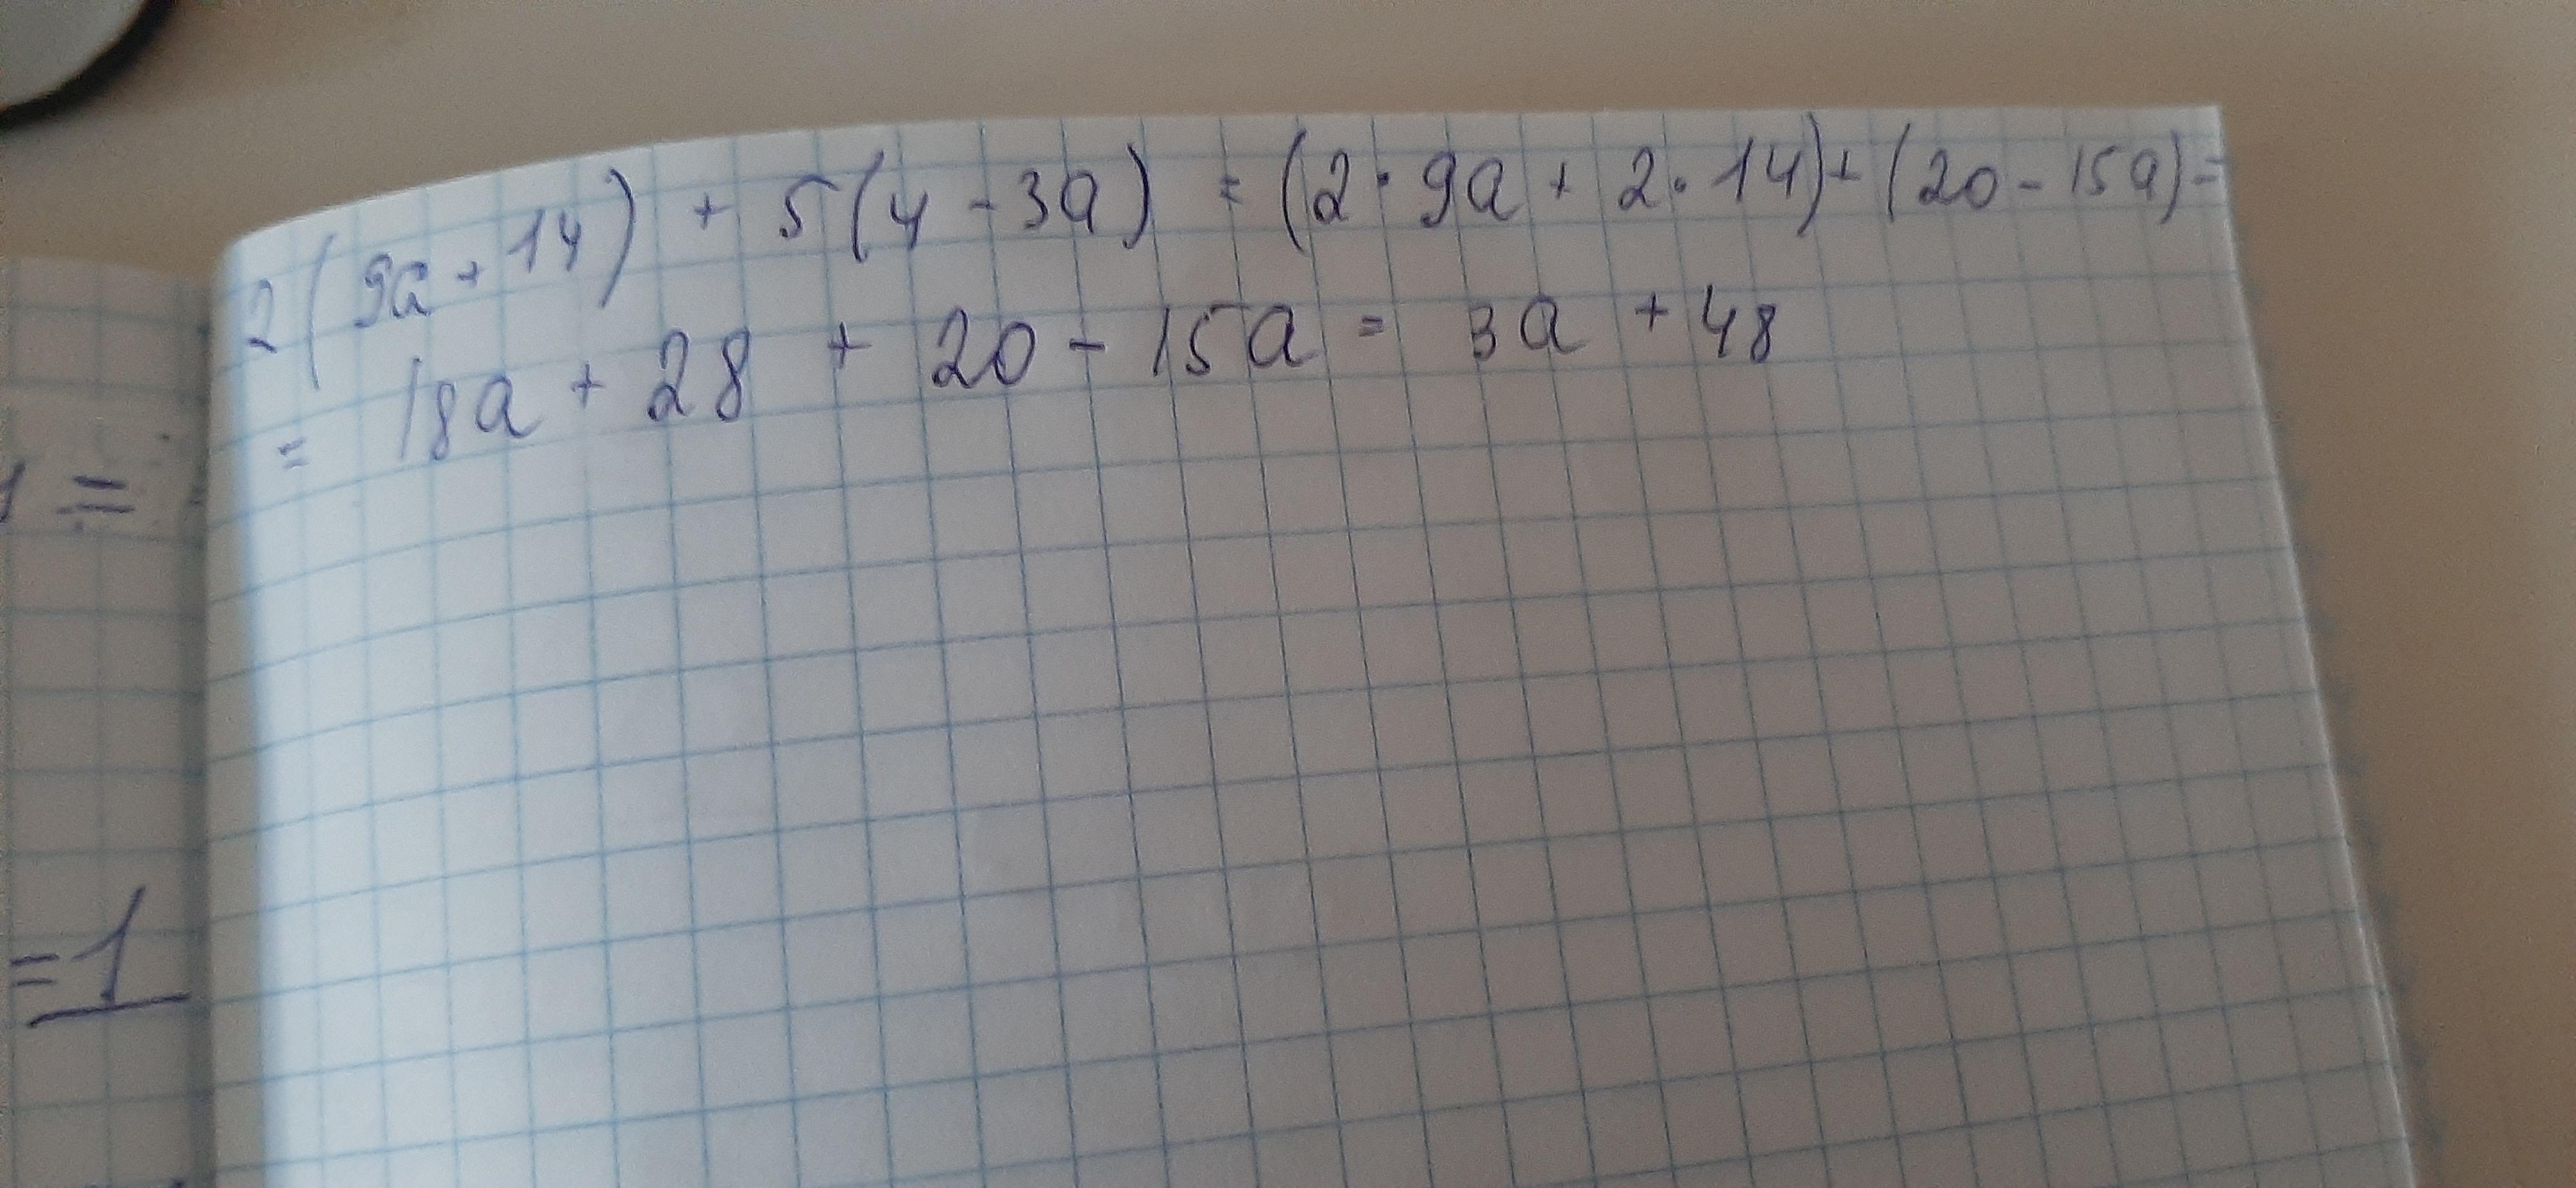 2(9a+14) + 5(4-3a) = (2·9a + 2·14)+(20-15a)=
= 18a + 28 + 20 - 15a = 3a + 48
=
=1